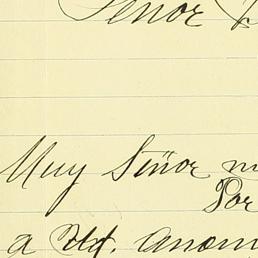 Señor
Muy Señor m
Por
a Ud.